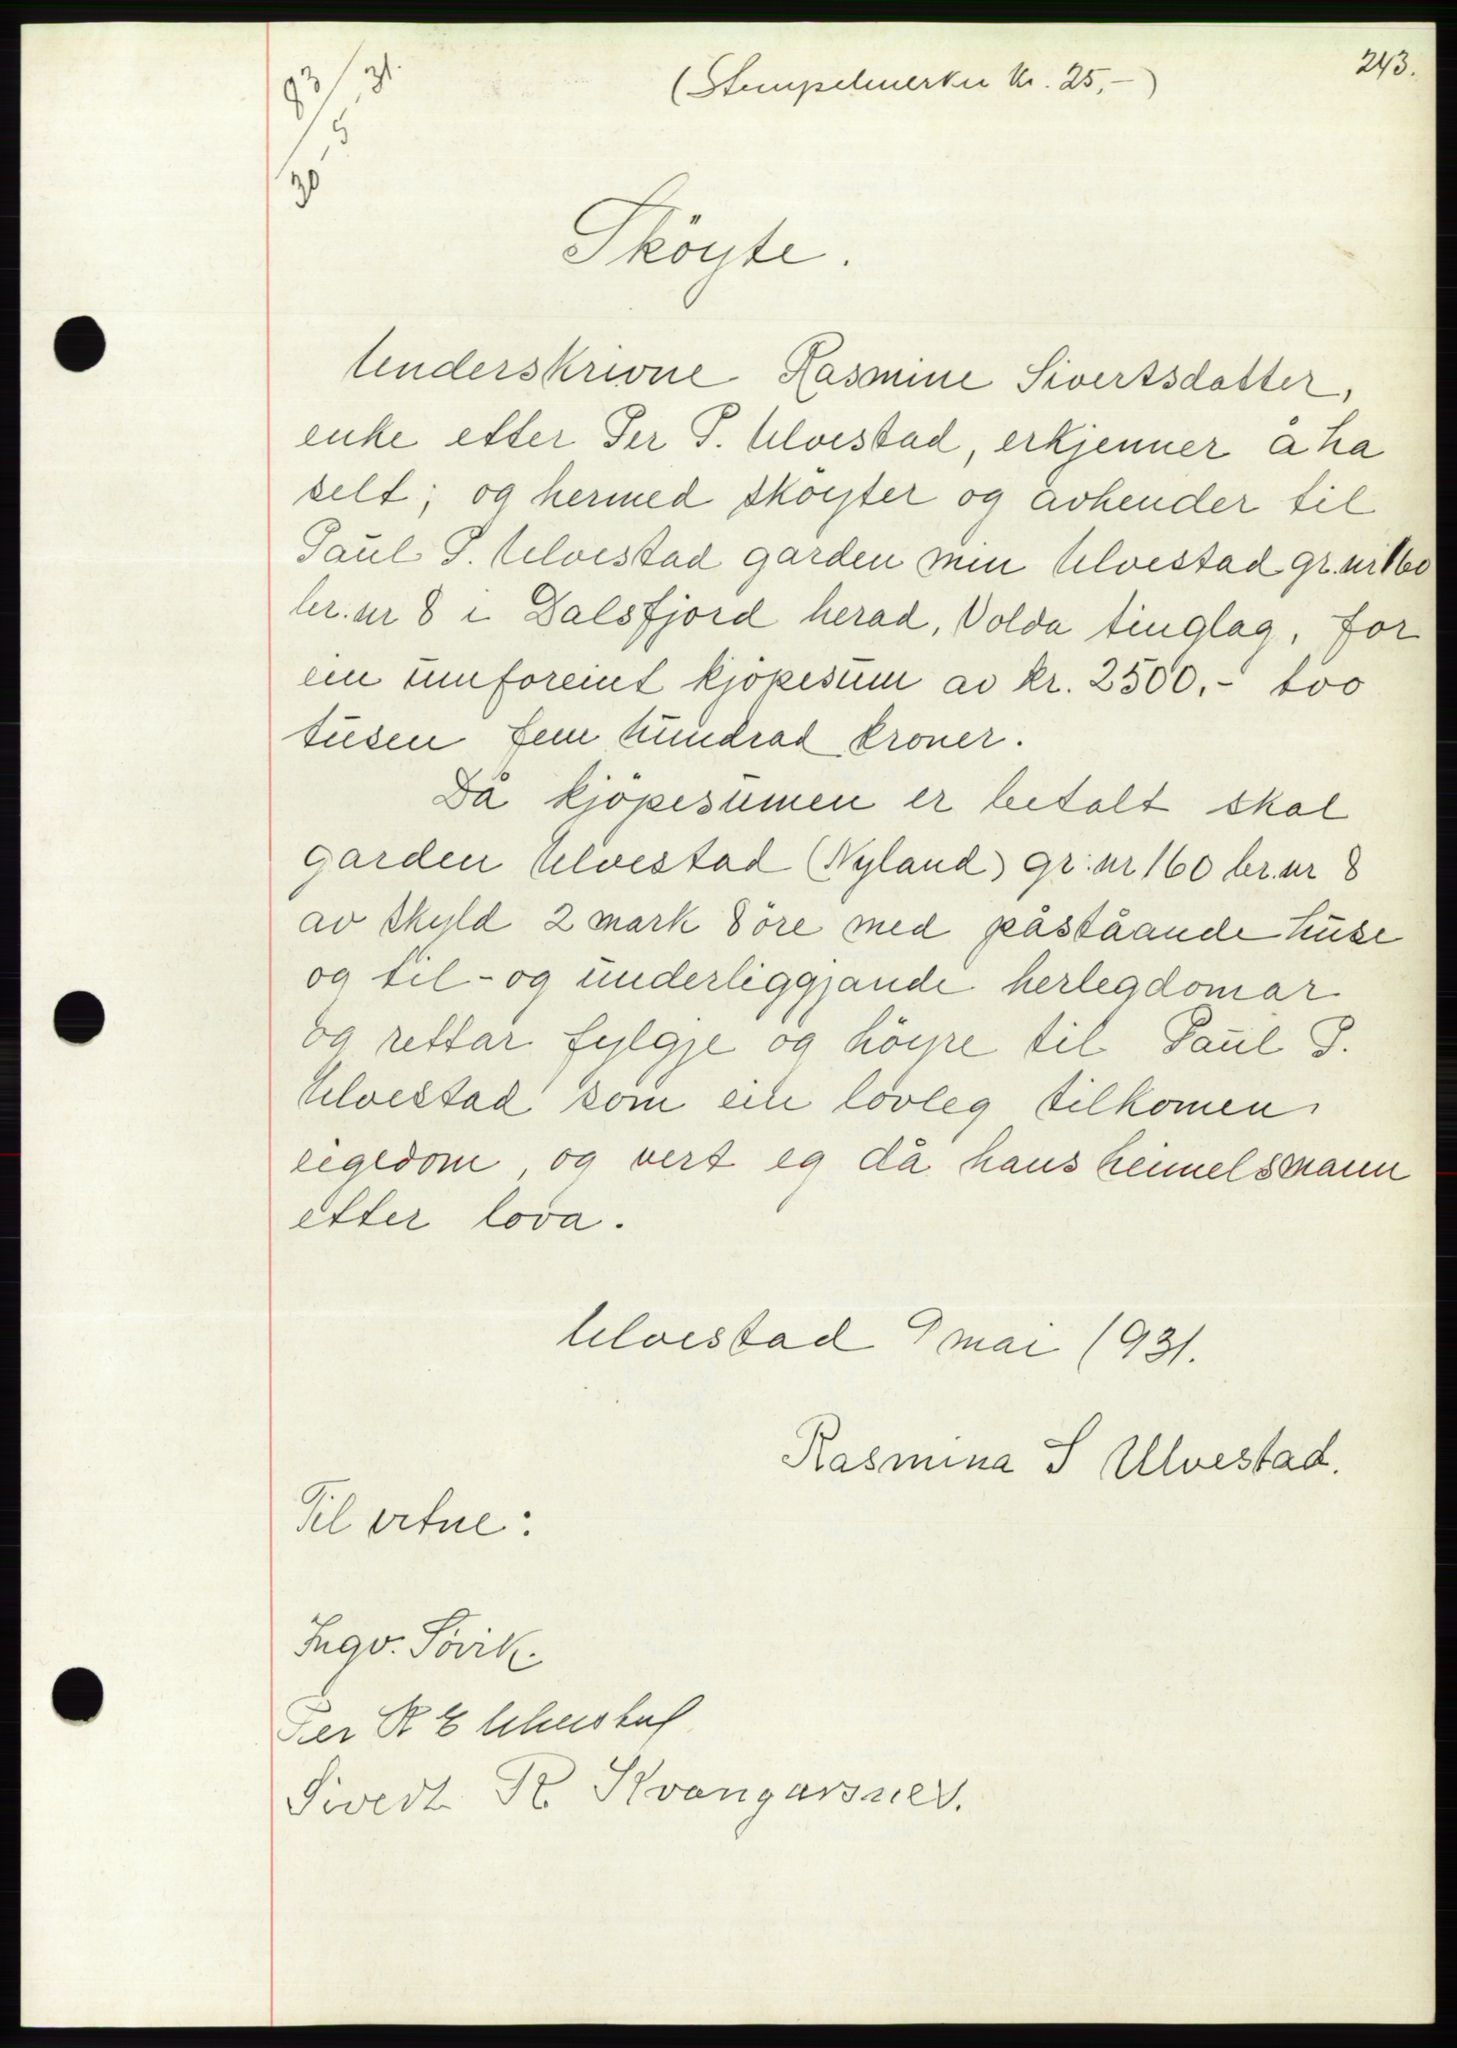 243.
83/31.
30/5
(Stempelmerker kr. 25,-)
Sköyte.
Underskrivne Rasmine Sivertsdatter,
enke etter Per P. Ulvestad, erkjenner å ha
selt; og hermed sköyter og avhender til
Paul P. Ulvestad garden min Ulvestad gr.nr 160
br.nr 8 i Dalsfjord herad, Volda tinglag, for
ein umforeint kjöpesum av kr. 2500.- tvo
tusen fem hundrad kroner.
Då kjöpesumen er betalt skal
garden Ulvestad (Nyland) gr.nr 160 br.nr 8
av skyld 2 mark 8 öre med påståande huse
og til- og underliggjande herlegdomar
og rettar fylgje og höyre til Paul P.
Ulvestad som ein lovleg tilkomen
eigedom, og vert eg då hans heimelsmann
etter lova.
Ulvestad 9 mai 1931.
Rasmina S Ulvestad.
Til vitne:
Ingv. Sövik.
Per R E Ulvestad
Sivert R. Kvangarsnes.